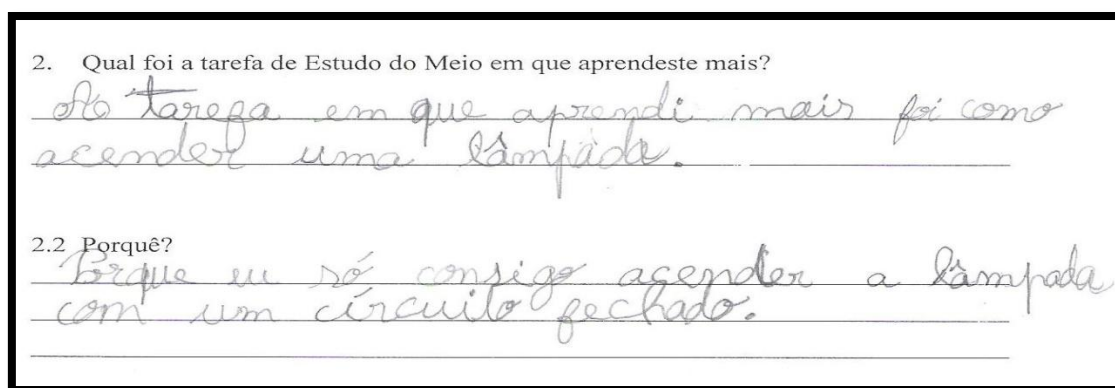 2. Qual foi a tarefa de Estudo do Meio em que aprendeste mais?
A tarefa em que aprendi mais foi como
acender uma lâmpada.
2.2 Porquê?
Porque eu só consigo acender a lâmpada
com um círcuito fechado.